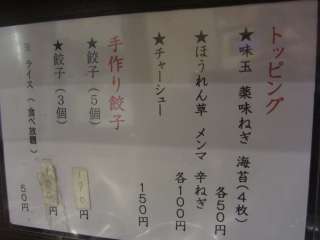 トッピング
★味玉 薬味ねぎ 海苔(4枚) 各50円
★ほうれん草 メンマ 辛ねぎ 各100円
★チャーシュー 150円
手作り餃子
★餃子(5個) 190円
★餃子(3個) 円
ライス(食べ放題) 50円